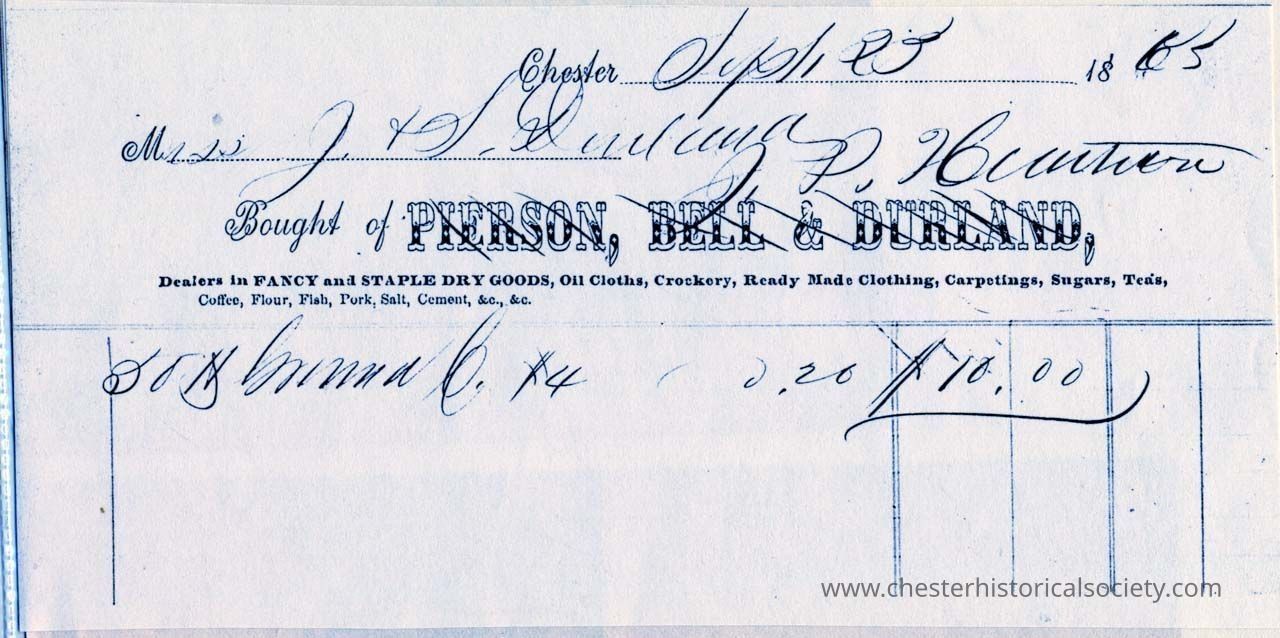 Chester Sept. 23 1865
J. & S. Durland
J. P.
Bought of PIERSON, BELL & DURLAND,
Dealers in FANCY and STAPLE DRY GOODS, Oil Cloths, Crockery, Ready Made Clothing, Carpetings, Sugars, Teas,
Coffee, Flour, Fish, Pork, Salt, Cement, &c., &c.
50 C. #4 0.20 $10.00
www.chesterhistoricalsociety.com